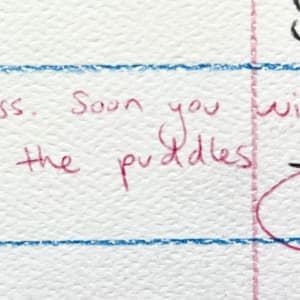 ss. Soon you wi
the puddles